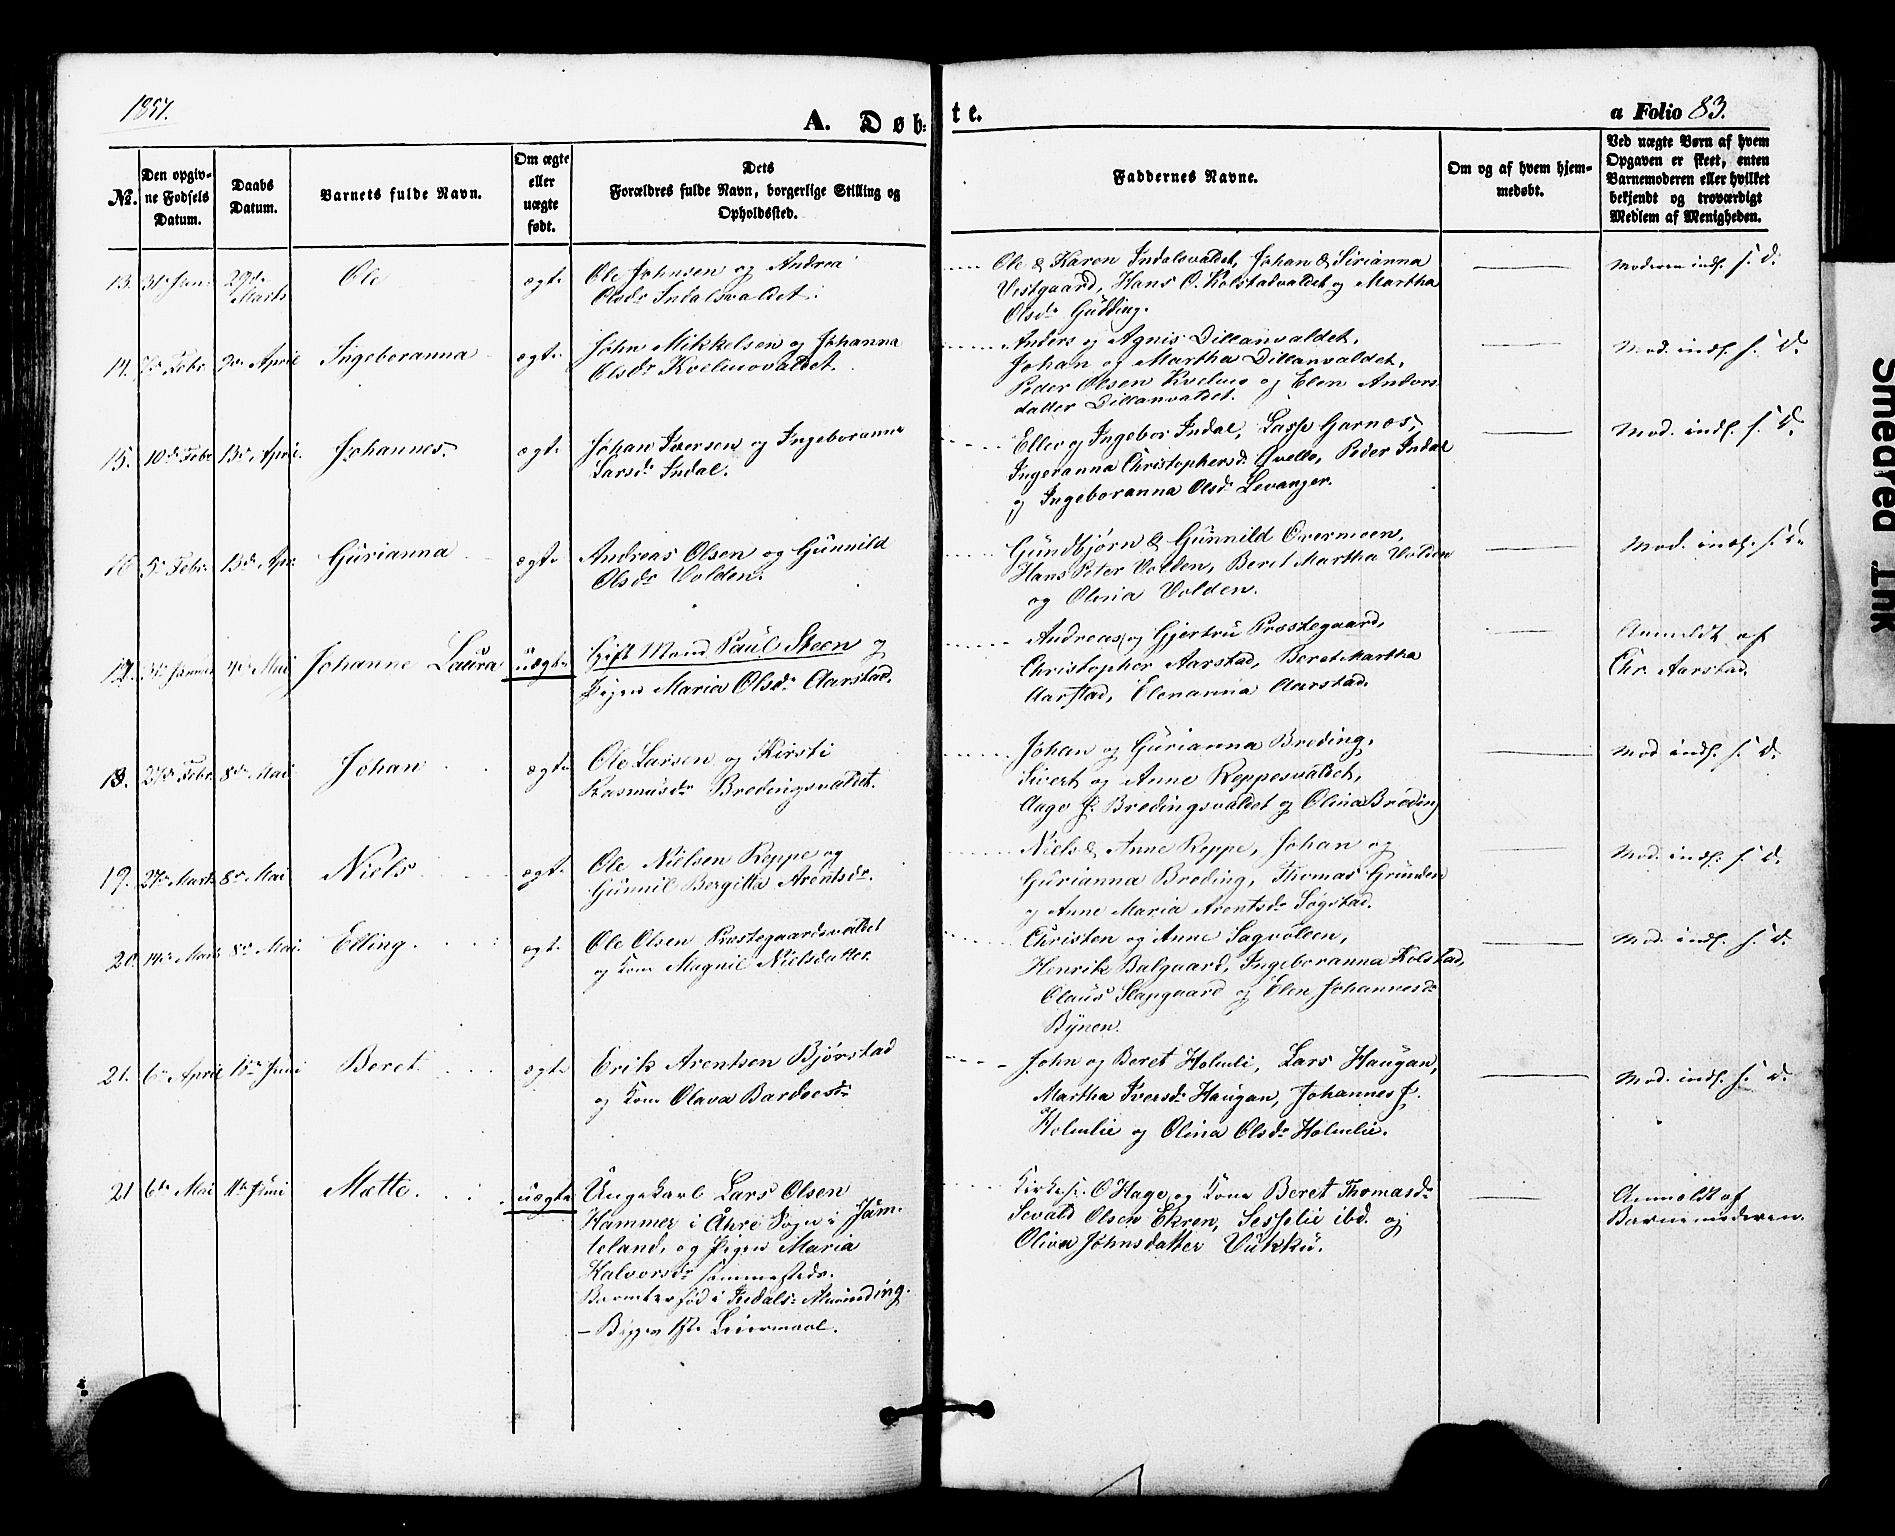 1857.
A. Døb-
te.
a Folio 83.
No.
Den opgiv-
ne Fødsels
Datum.
Daabs
Datum.
Barnets fulde Navn.
Om ægte
eller
uægte
født.
Dets
Forældres fulde Navn, borgerlige Stilling og
Opholdssted.
Faddernes Navne.
Om og af hvem hjem-
medøbt.
Ved uægte Børn af hvem
Opgaven er skeet, enten
Barnemoderen eller hvilket
bekjendt og troværdigt
Medlem af Menigheden.
13. 31 Jan. 29de Marts Ole ægte
Ole Johnsen og Andrea
Olsdr Indalsvaldet.
Ole & Karen Indalsvaldet, Johan & Sirianna
Vestgaard, Hans O. Kolstadvaldet og Martha
Olsdr Gudding.
Moderen indf. s. D.
14. Febr. April Ingeboranna ægte
John Mikkelsen og Johanna
Olsdr Kvelmovaldet.
Anders og Agnis Dillanvaldet,
Johan og Martha Dillanvaldet,
Peder Olsen Kvelmo og Elen Anders
datter Dillanvaldet.
Mod. indf. s. D.
15. 10de Febr. 13de April Johannes. ægte
Johan Iversen og Ingeboranna
Larsdr Indal.
Ellev og Ingebor Indal, Lasse Garnes,
Ingeranna Christophersd. Qvello, Peder Indal
og Ingeboranna Olsdr Levanger.
Mod. indf. s. D.
16 5te Febr. 13de Apr. Gurianna ægte
Andreas Olsen og Gunnild
Olsdr Volden.
Gundbjørn & Gunnild Overmoen,
Hans Peter Volden, Beret Martha Volden
og Olina Volden.
Mod. indf. s. D.
17. Mai Johanne Laura uægte
Gift Mand Paul Steen og
Pigen Maria Olsdr Aarstad.
Andreas og Gjertru Præstegaard,
Christopher Aarstad, Beret Martha
Aarstad, Elenanna Aarstad.
Anmeldt af
Chr. Aarstad.
18. 27de Febr. 8de Mai Johan ægte
Ole Larsen og Kirsti
Rasmusdr Bredingsvaldet.
Johan og Gurianna Breding,
Sivert og Anne Reppesvaldet,
Aage J. Bredingsvaldet og Olina Breding
Mod indf. s. D.
19. 27de Marts 8de Mai Niels ægte
Ole Nielsen Reppe og
Gunnil Bergitta Arentsdr.
Niels & Anne Reppe, Johan og
Gurianna Breding, Thomas Grunden
og Anne Maria Arentsdr Søgstad.
Mod. indf. s. D.
20. 14de Marts 8de Mai Elling. ægte
Ole Olsen Præstegaardsvaldet
og Kone Magnil Nielsdatter.
Christen og Anne Sagvolden,
Henrik Balgaard, Ingeboranna Kolstad,
Olaus Slapgaard og Elen Johannesdr
Bynen.
Mod. indf. s. D.
21. 6te April Juni Beret ægte
Erik Arentsen Bjørstad
og Kone Olava Bardoesdr
John og Beret Holmli, Lars Haugan,
Martha Iversdr Haugan, Johannes J.
Holmlie og Olina Olsdr Holmlie.
Mod. indf. s. D.
21 6te Mai 11te Juni Mette. uægte
Ungekarl Lars Olsen
Hammer i Åhre Sogn i Jäm-
teland, og Pigen Maria
Halvorsdr sammesteds.
Barnet er fød i Indals-Alminding.
– Begges 1ste Leiermaal.
Kirkes. O Hage og Kone Beret Thomasdr
Sevald Olsen Ekren, Sesselie ibd. og
Oliva Johnsdatter Vukku.
Anmeldt af
Barnemoderen.
Smeared Ink